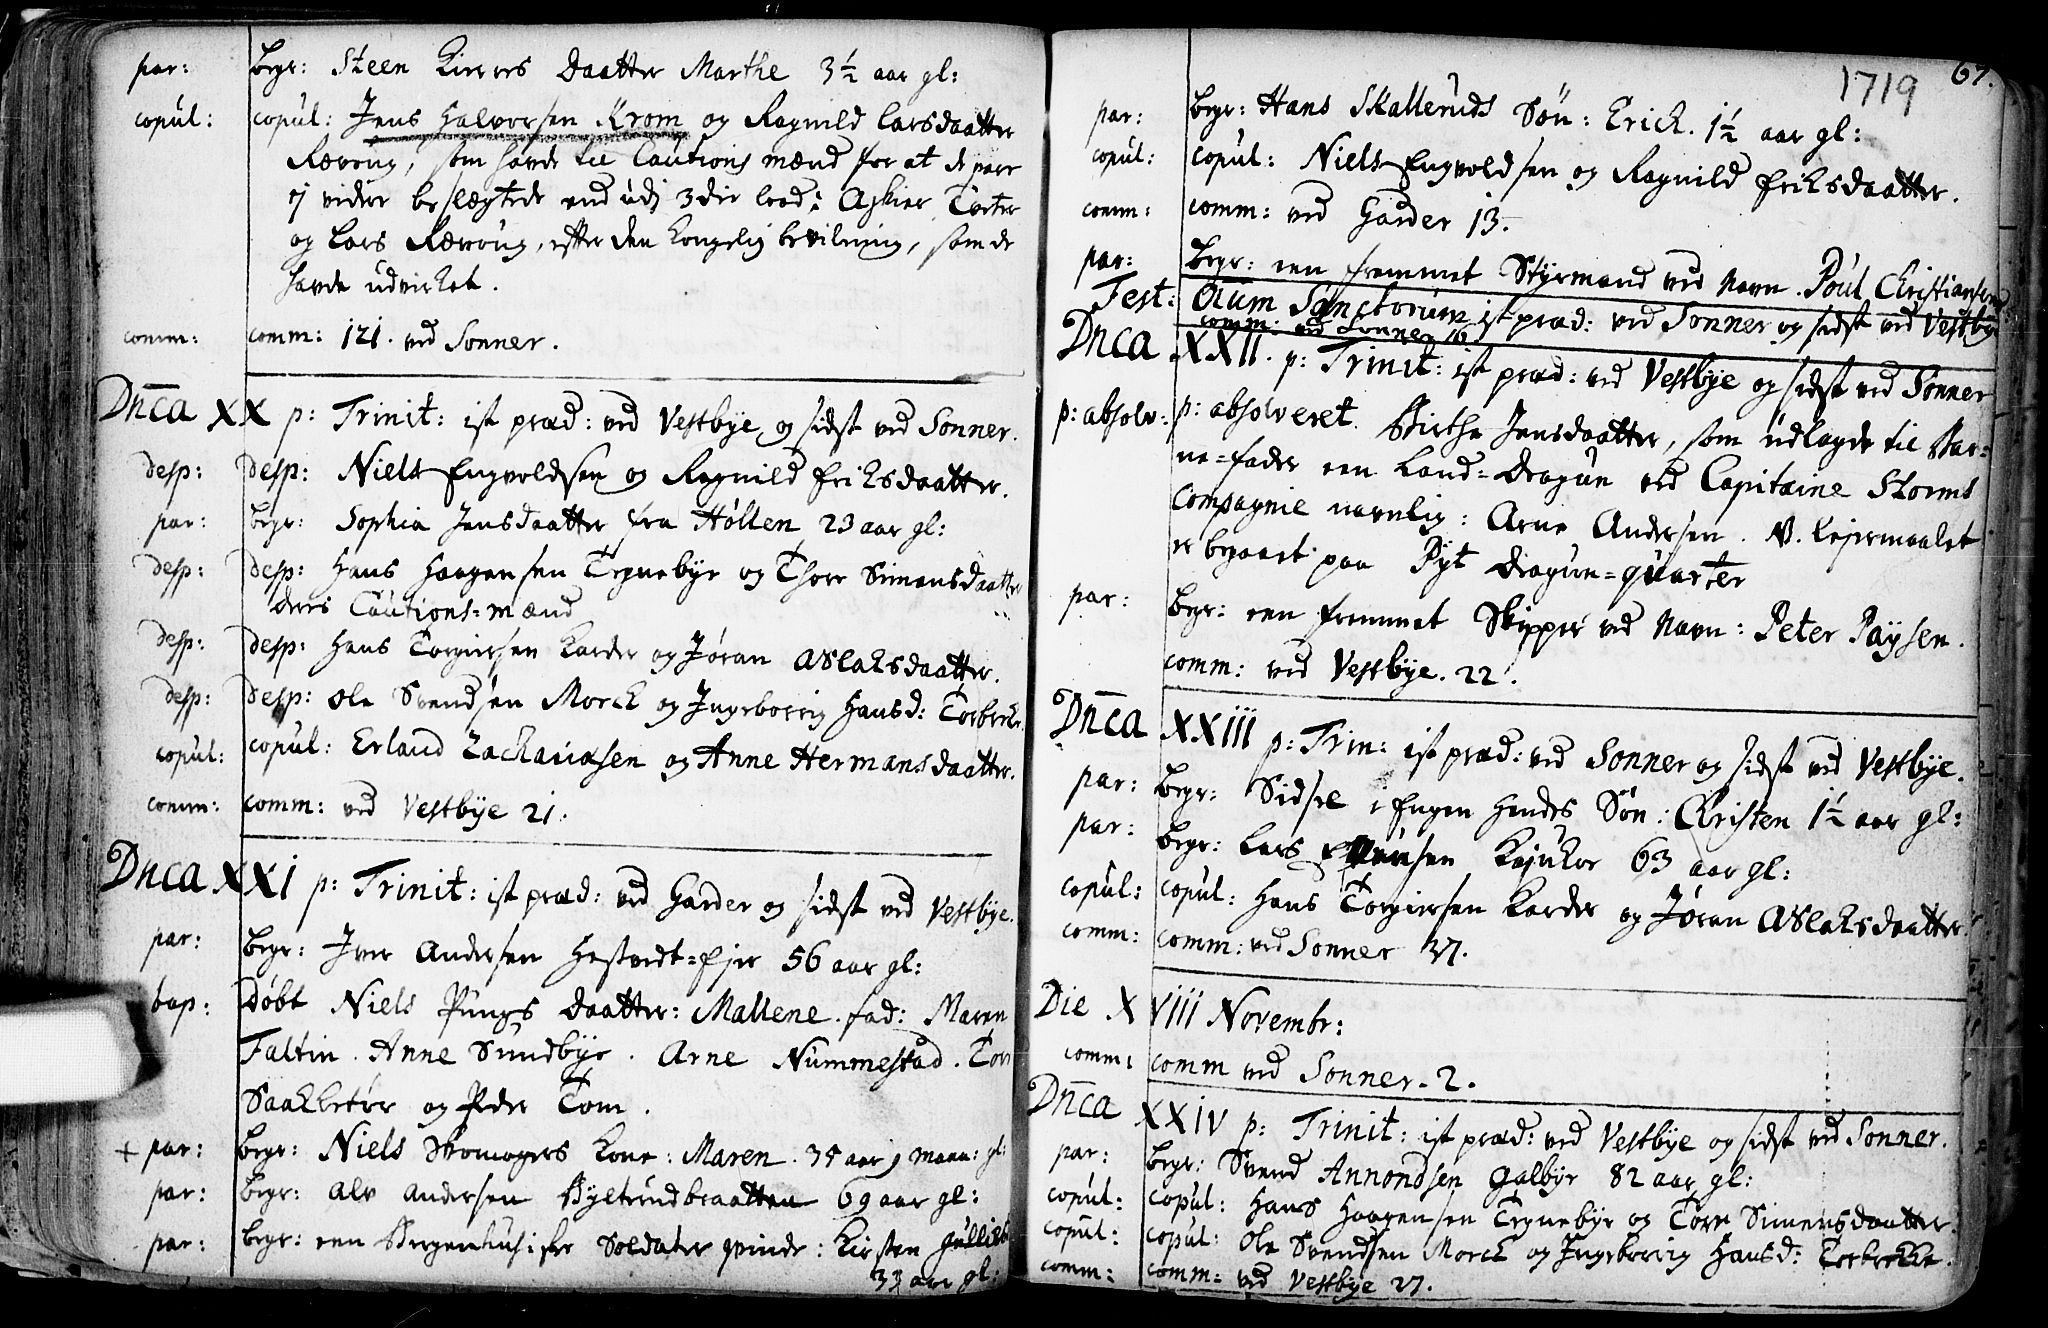 par: begr: Steen Kierres Daatter Marthe 3½ aar gl:
copul: copul: Jens Halvorsen Krom og Ragnild Larsdaatter
Rævoug, som havde til Cautions mænd for at de vare
ej videre beslægtede end udj 3die leed: Askier Tveter
og Lars Rævoug, efter den kongelig bevilning, som de
havde udvirket.
comm: comm: 121. ved Sonner.
Dn̄ca XX p: Trinit: ist præd: ved Vestbÿe og sidst ved Sonner.
desp: desp: Niels Engvoldsen og Ragnild Eriksdaatter.
par: begr: Sophia Jensdaatter fra Høllen 23 aar gl:
desp: desp: Hans Haagensen Tegnebÿe og Thore Simensdaatter
deris Cautions=mænd ...
desp: desp: Hans Torgiersen Karder og Jøran Aslaksdaatter.
desp: desp: Ole Svendsen Morck og Ingeborrig Hansd: Torbrecke.
copul: copul: Erland Zachariasen og Anne Hermansdaatter.
comm: comm: ved Vestbÿe 21.
Dnca XXI p: Trinit: ist præd: ved Garder og sidst ved Vestbÿe.
par: begr: Iver Andersen Hestvedt=Ejer 56 aar gl:
bap: Døbt Niels Pungs Daatter: Mallene. fad: Maren
Faltin. Anne Sundbÿe. Arne Nummestad. Tore
Saakbetør og Peder Tom.
+ par: begr: Niels Skomagers Kone: Maren. 35 aar 9 maan: gl:
par: begr: Alv Andersen Bÿlterudbraatten 69 aar gl:
par: begr: een Bergenhusiske Soldater qvinde: Kirsten
33 aar gl:
1719 67.
par: begr: Hans Skalleruds Søn: Erick. 1½ aar gl:
copul: copul: Niels Engvoldsen og Ragnild Eriksdaatter.
comm: comm: ved Garder 13.
par: begr: een fremmet Stÿrmand ved Navn. Poul Christiansen
Fest: Oi͞um Sanctorum ist præd: ved Sonner og sidst ved Vestbÿe
comm: ved Sonner 16
Dn̄ca XXII. p: Trinit: ist præd: ved Vestbÿe og sidst ved Sonner
p: absolv: p: absolveret. Birthe Jensdaatter, som udlagde til Bar=
ne=fader een Land=Dragun ved Capitaine Storms
Compagnie navnlig: Arne Andersen. N. Lejermaalet
er begaaet paa Pÿt Dragun=quarter
par: begr: een fremmet Skipper ved Navn: Peter Paÿsen.
comm: ved Vestbÿe. 22.
Dn̄ca XXIII p: Trin: ist præd: ved Sonner og sidst ved Vestbÿe.
par: begr: Sidsel i Engen hendes Søn: Christen 1½ aar gl:
par: begr: Lars Kajuker 63 aar gl:
copul: copul: Hans Torgiersen Karder og Jøran Aslaksdaatter
comm: comm: ved Sonner 37.
Die XVIII Novembr:
comm: comm ved Sonner. 2.
Dn̄ca XXIV p: Trinit: ist præd: ved Vestbÿe og sidst ved Sonner.
par: begr: Svend Annondsen Galbÿe 82 aar gl:
copul: copul: Hans Haagensen Tegnebÿe og Tore Simensdaatter
copul: copul: Ole Svendsen Morck og Ingeborrig Hansd: Torbrekke.
comm: comm: ved Vestbÿe 27.